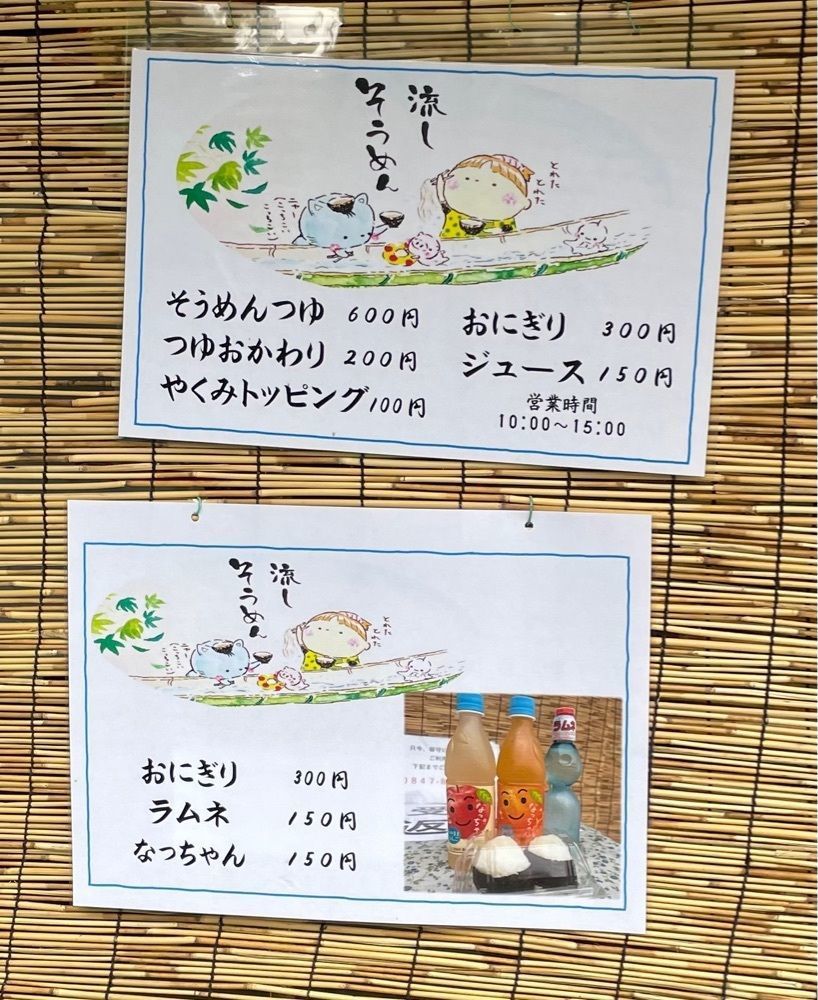 流し
そうめん
とれた
とれた
そうめんつゆ 600円
つゆおかわり 200円
やくみトッピング 100円
おにぎり 300円
ジュース 150円
営業時間
10:00～15:00
流し
そうめん
とれた
とれた
おにぎり 300円
ラムネ 150円
なっちゃん 150円
ラムネ
なっちゃん